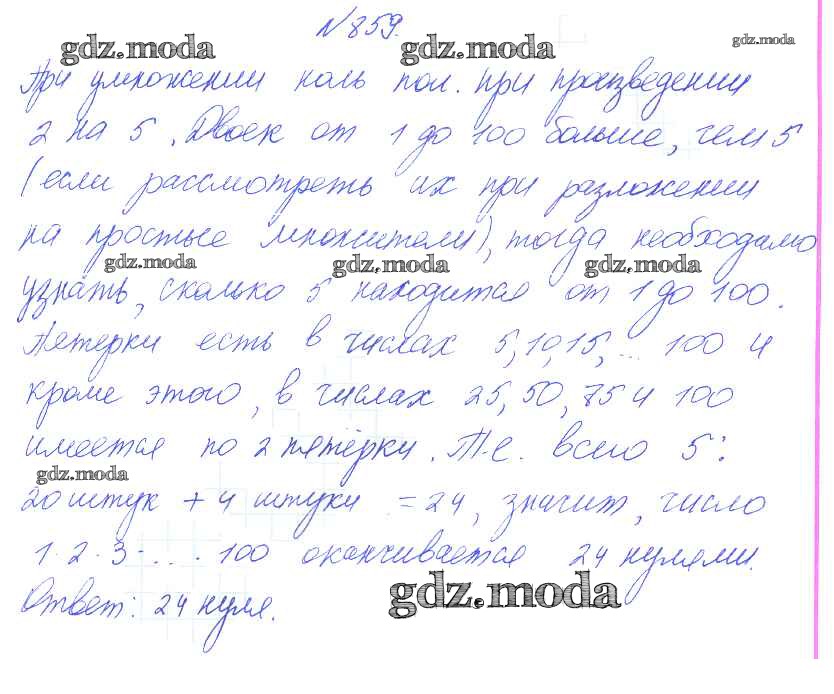 N 859.
gdz.moda gdz.moda gdz.moda
При умножении ноль пол. при произведении
2 на 5. Двоек от 1 до 100 больше, чем 5
(если рассмотреть их при разложении
на простые множители), тогда необходимо
gdz.moda gdz.moda gdz.moda
узнать, сколько 5 находится от 1 до 100.
Пятерки есть в числах 5, 10, 15, ... 100 и
кроме этого, в числах 25, 50, 75 и 100
имеется по 2 пятёрки. Т.е. всего 5:
gdz.moda
20 штук + 4 штуки = 24, значит, число
1·2·3·...·100 оканчивается 24 нулями.
Ответ: 24 нуля.
gdz.moda